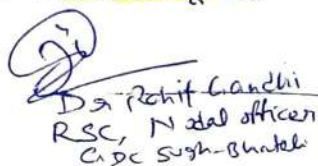 Dr Rohit Gandhi
RSC, Nodal officer
GDC Sugh-Bhatoli